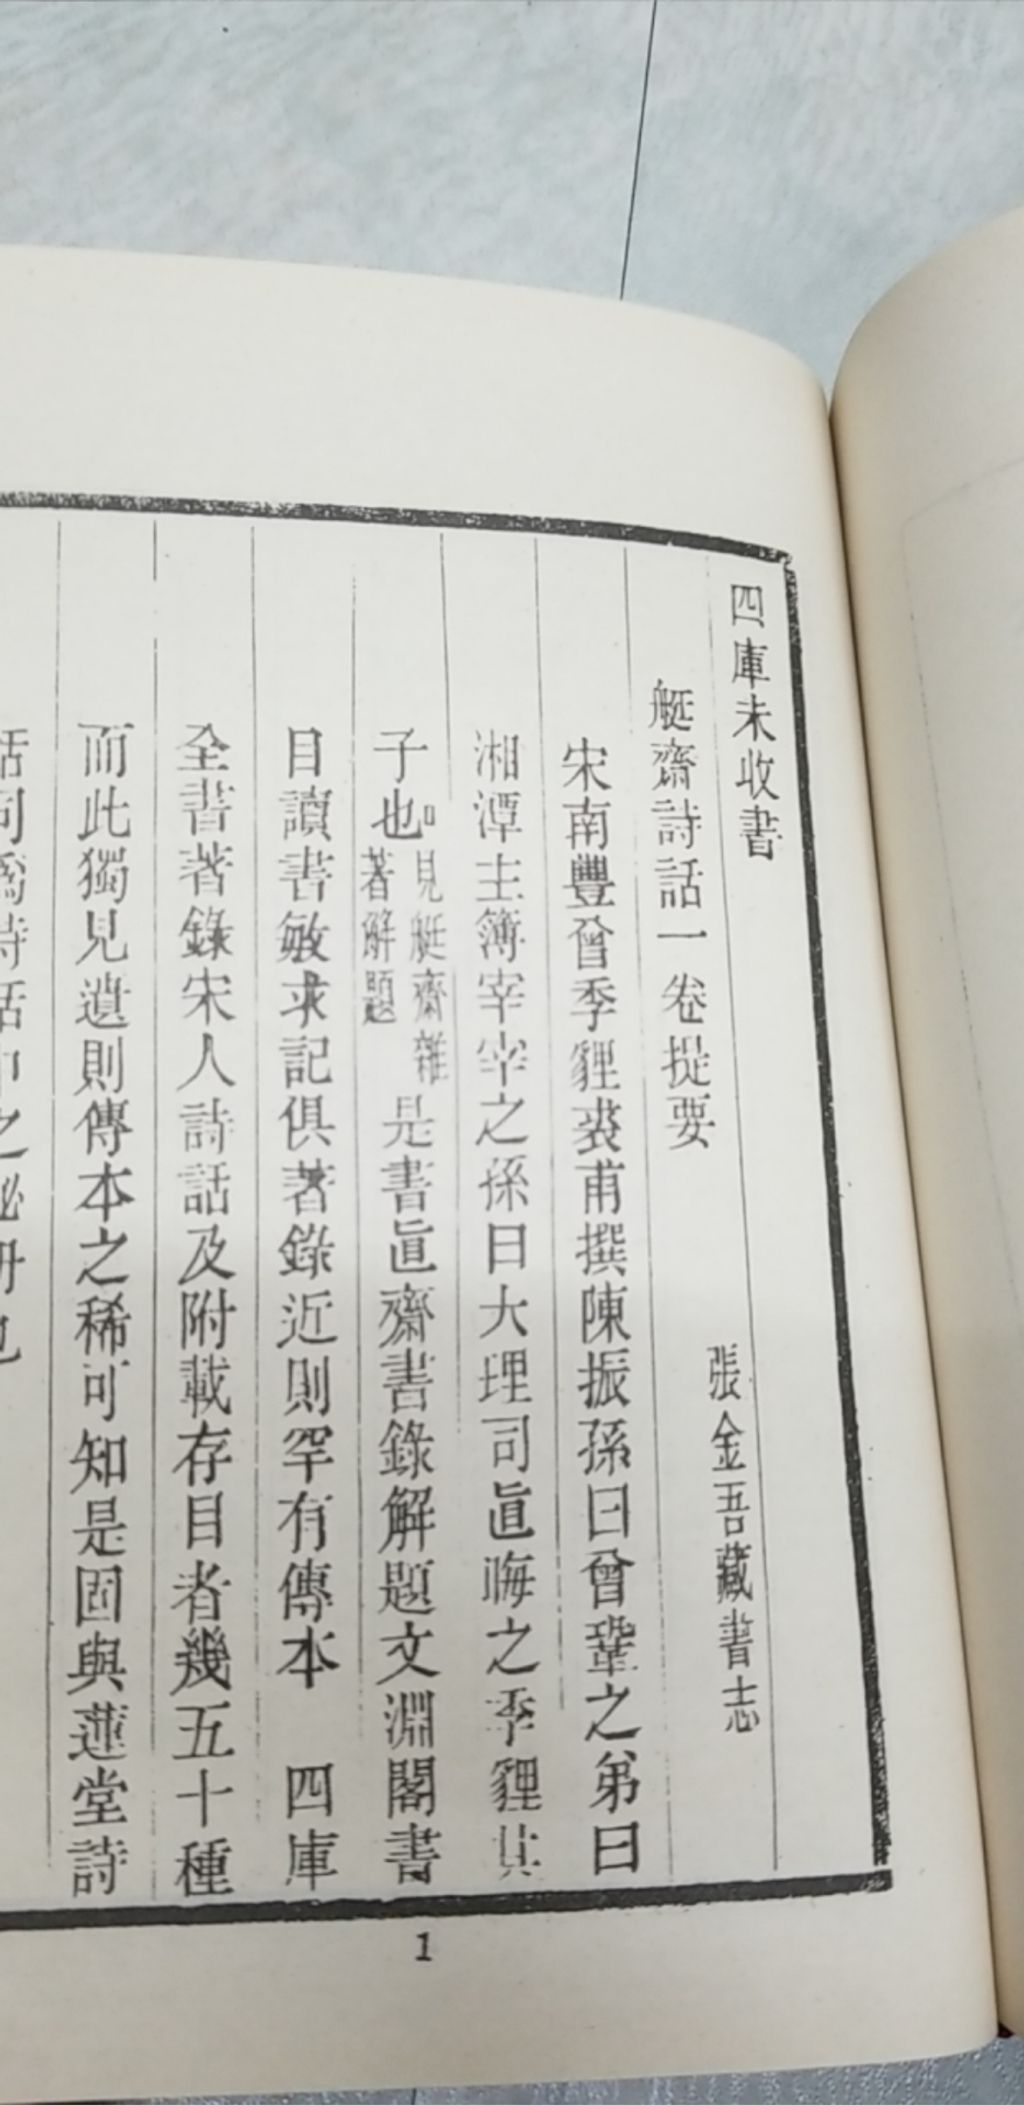 四庫未收書
艇齋詩話一卷提要 張金吾藏書志
宋南豐曾季貍裘甫撰陳振孫曰曾鞏之弟曰
湘潭主簿宰宰之孫曰大理司直晦之季貍其
子也見艇齋雜著解題是書直齋書錄解題文淵閣書
目讀書敏求記俱著錄近則罕有傳本 四庫
全書著錄宋人詩話及附載存目者幾五十種
而此獨見遺則傳本之稀可知是固與蓮堂詩
話同為詩話中之秘冊也
1